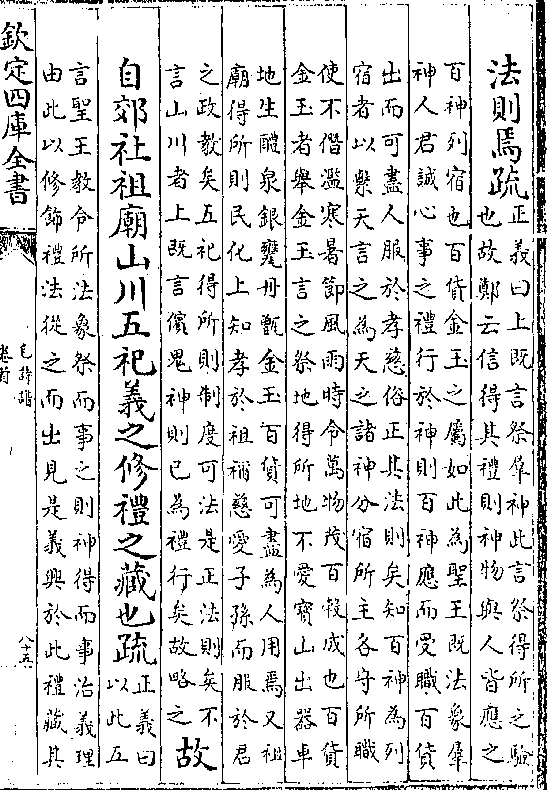 法則焉疏
正義曰上既言祭羣神此言祭得所之驗
也故鄭云信得其禮則神物與人皆應之
百神列宿也百貨金玉之屬如此為聖王既法象羣
神人君誠心事之禮行於神則百神應而受職百貨
出而可盡人服於孝慈俗正其法則矣知百神為列
宿者以祭天言之為天之諸神分宿所主各守所職
使不僭濫寒暑節風雨時令萬物茂百穀成也百貨
金玉者舉金玉言之祭地得所地不愛寳山出器車
地生醴泉銀甕丹甑金玉百貨可盡為人用焉又祖
廟得所則民化上知孝於祖禰慈愛子孫而服於君
之政教矣五祀得所則制度可法是正法則矣不
言山川者上既言儐鬼神則已為禮行矣故略之
故
自郊社祖廟山川五祀義之修禮之藏也疏
正義曰
以此五
言聖王教令所法象祭而事之則神得而事治義理
由此以修飾禮法從之而出見是義興於此禮藏其
欽定四庫全書
毛詩譜
卷首
八十五